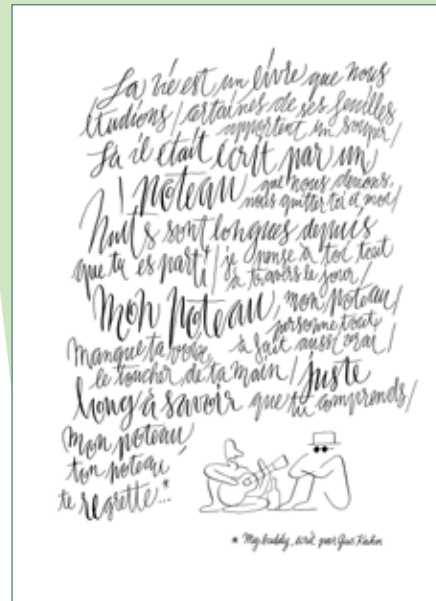 La vie est un livre que nous
étudions/certaines de ses feuilles
apportent un soupir/
La il était écrit par un
poteau que nous devons.
nous quitter toi et moi/
Nuits sont longues depuis
que tu es parti/je pense à toi tout
à travers le jour/
Mon Poteau, mon poteau/
personne toute
Manque ta voix, à fait aussi vrai/
le toucher de ta main/juste
long à savoir que tu comprends/
Mon poteau
ton poteau
te regrette...*
* My buddy, par Gus Kahn